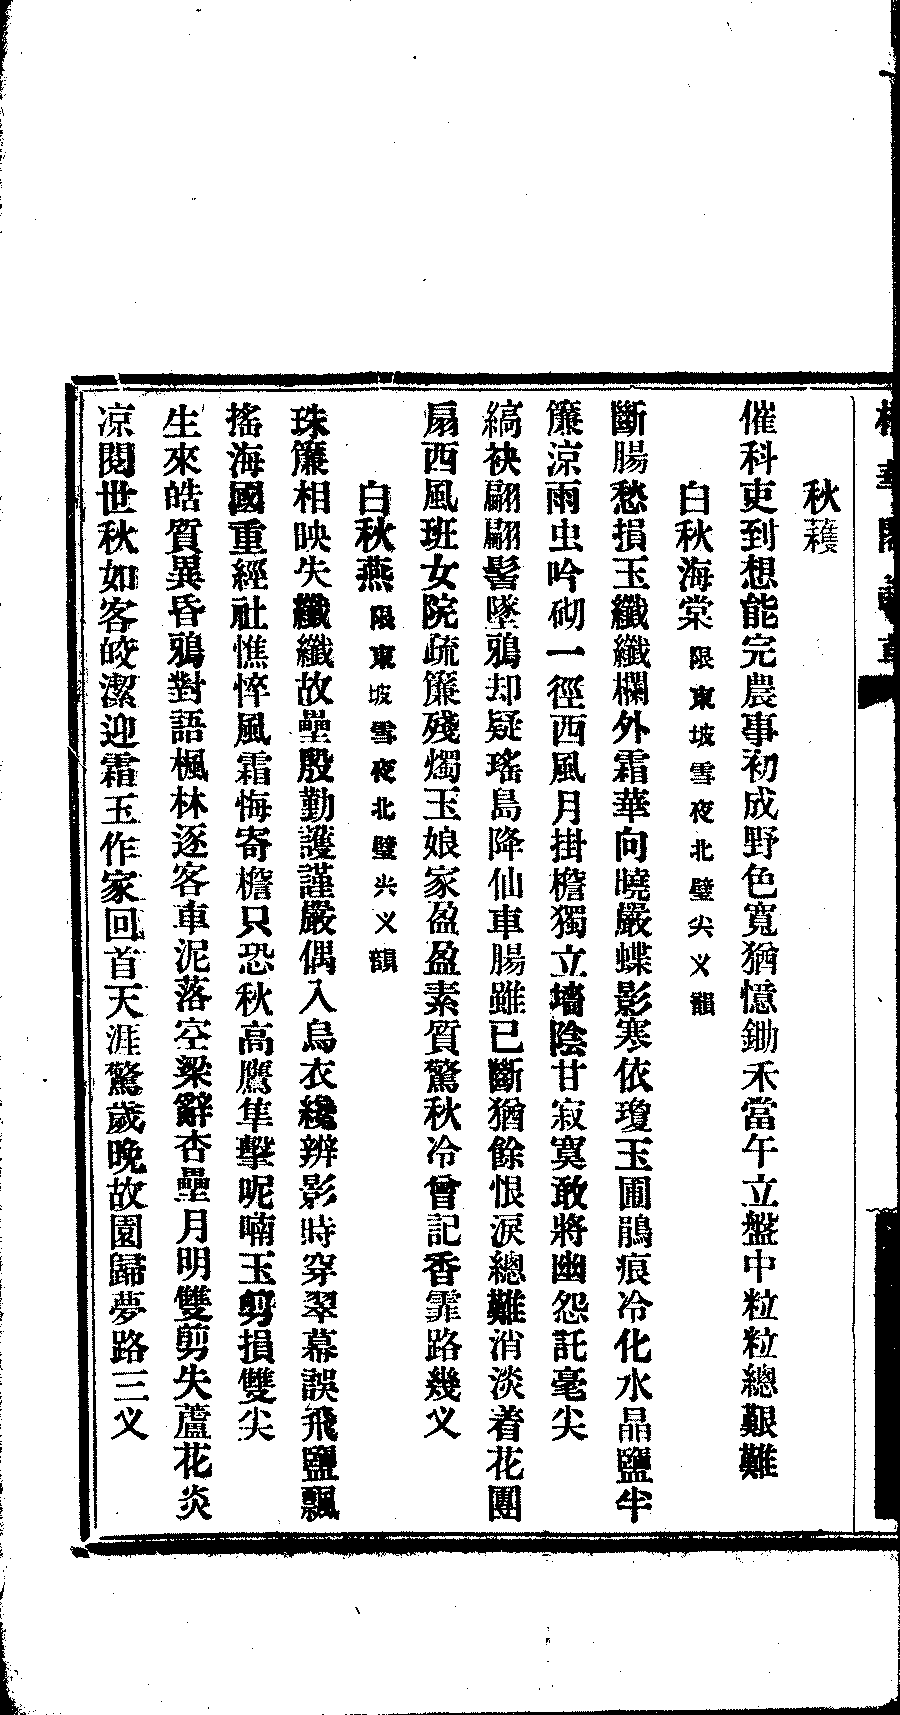 秋穫
催科吏到想能完農事初成野色寬猶憶鋤禾當午立盤中粒粒總艱難
白秋海棠限東坡雪夜北壁尖义韻
斷腸愁損玉纖纖欄外霜華向曉嚴蝶影寒依瓊玉圃鵑痕冷化水晶鹽半
簾涼雨虫吟砌一徑西風月掛檐獨立墻陰甘寂寞敢將幽怨託毫尖
縞袂翩翩髻墜鴉却疑瑤島降仙車腸雖已斷猶餘恨淚總難消淡着花團
扇西風班女院疏簾殘燭玉娘家盈盈素質驚秋冷曾記香霏路幾义
白秋燕限東坡雪夜北壁尖义韻
珠簾相映失纖纖故壘殷勤護謹嚴偶入烏衣纔辨影時穿翠幕誤飛鹽飄
搖海國重經社憔悴風霜悔寄檐只恐秋高鷹隼擊呢喃玉剪損雙尖
生來皓質異昏鴉對語楓林逐客車泥落空梁辭杏壘月明雙剪失蘆花炎
凉閱世秋如客皎潔迎霜玉作家回首天涯驚歲晚故園歸夢路三义